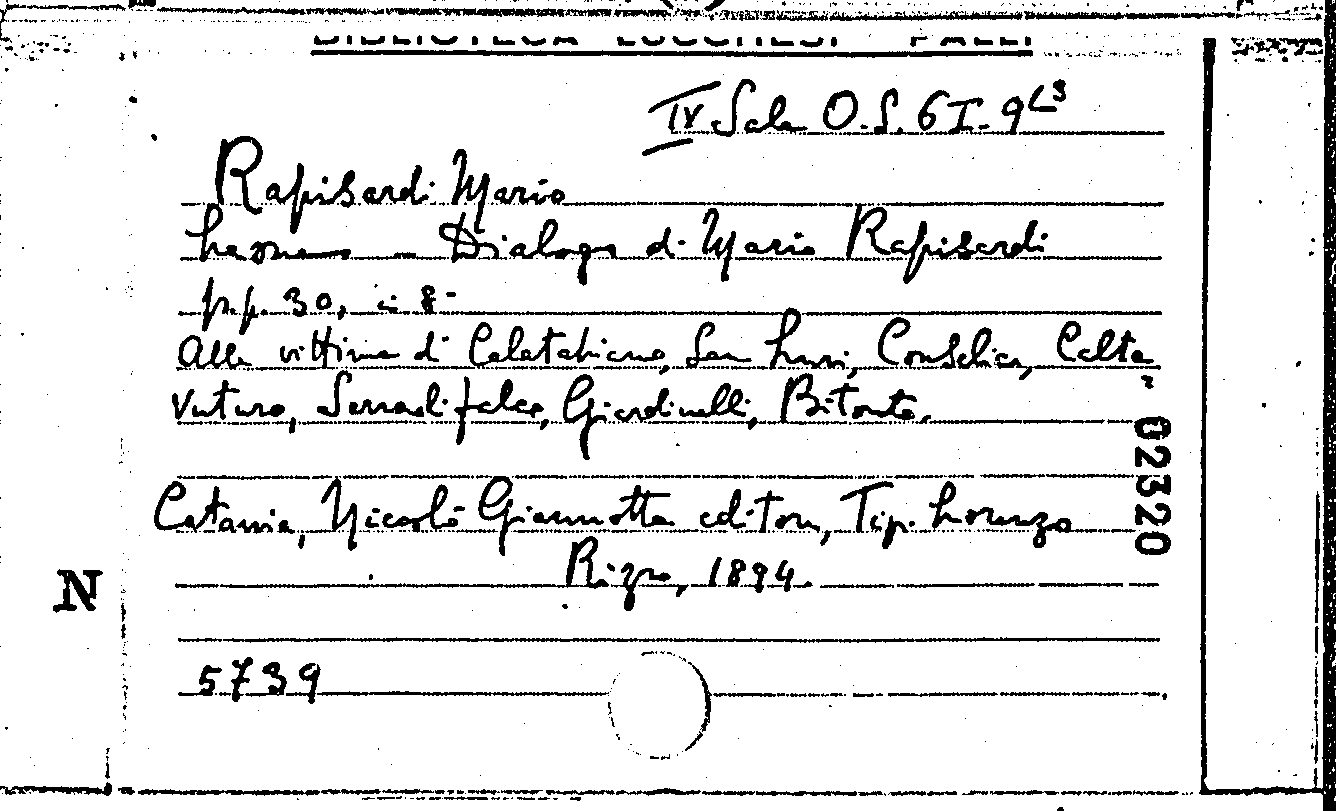 BIBLIOTECA LUCCHESI PALLI
IV Sala O.S. 6 I. 9(3
Rapisardi Mario
Leone — Dialogo di Mario Rapisardi
pp. 30, in 8°
Alle vittime di Calatabiano, San Luri, Conselice, Calta-
vuturo, Serradifalco, Giardinelli, Bitonto.
Catania, Niccolò Giannotta editore, Tip. Lorenzo
Rizzo, 1894.
5739
N
02320